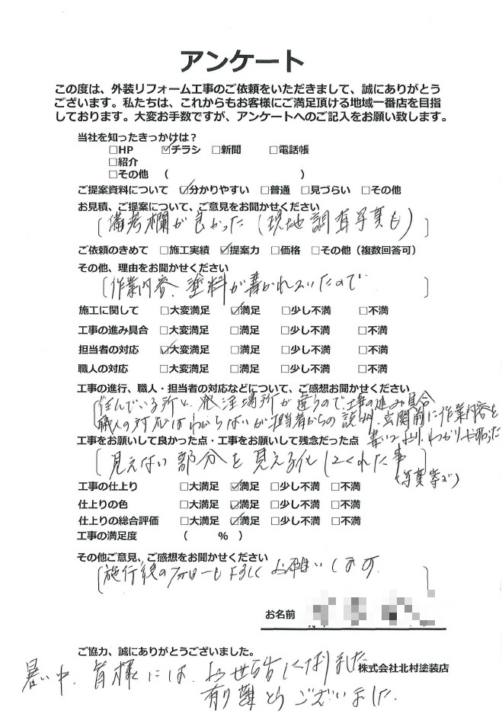 アンケート
この度は、外装リフォーム工事のご依頼をいただきまして、誠にありがとう
ございます。私たちは、これからもお客様にご満足頂ける地域一番店を目指
しております。大変お手数ですが、アンケートへのご記入をお願い致します。
当社を知ったきっかけは？
□HP ☑チラシ □新聞 □電話帳
□紹介
□その他 ( )
ご提案資料について ☑分かりやすい □普通 □見づらい □その他
お見積、ご提案について、ご意見をお聞かせください
[備考欄が良かった (現地調査写真も)]
ご依頼のきめて □施工実績 ☑提案力 □価格 □その他（複数回答可）
その他、理由をお聞かせください
[作業内容、塗料が書かれていたので]
施工に関して □大変満足 ☑満足 □少し不満 □不満
工事の進み具合 □大変満足 □満足 □少し不満 □不満
担当者の対応 ☑大変満足 □満足 □少し不満 □不満
職人の対応 □大変満足 □満足 □少し不満 □不満
工事の進行、職人・担当者の対応などについて、ご感想お聞かせください
[住んでいる所と、発注場所が違うので工事の進み具合
職人の対応はわからないが担当者からの説明、玄関前に作業内容を
工事をお願いして良かった点・工事をお願いして残念だった点
[見えない部分を見える化してくれた事
(写真等で)]
工事の仕上り □大満足 ☑満足 □少し不満 □不満
仕上りの色 □大満足 ☑満足 □少し不満 □不満
仕上りの総合評価 □大満足 ☑満足 □少し不満 □不満
工事の満足度 ( %)
その他ご意見、ご感想をお聞かせください
[施行後のフォローもよろしくお願いします]
お名前
ご協力、誠にありがとうございました。
株式会社北村塗装店
暑い中、皆様には、お世話になりました
有難とうございました。